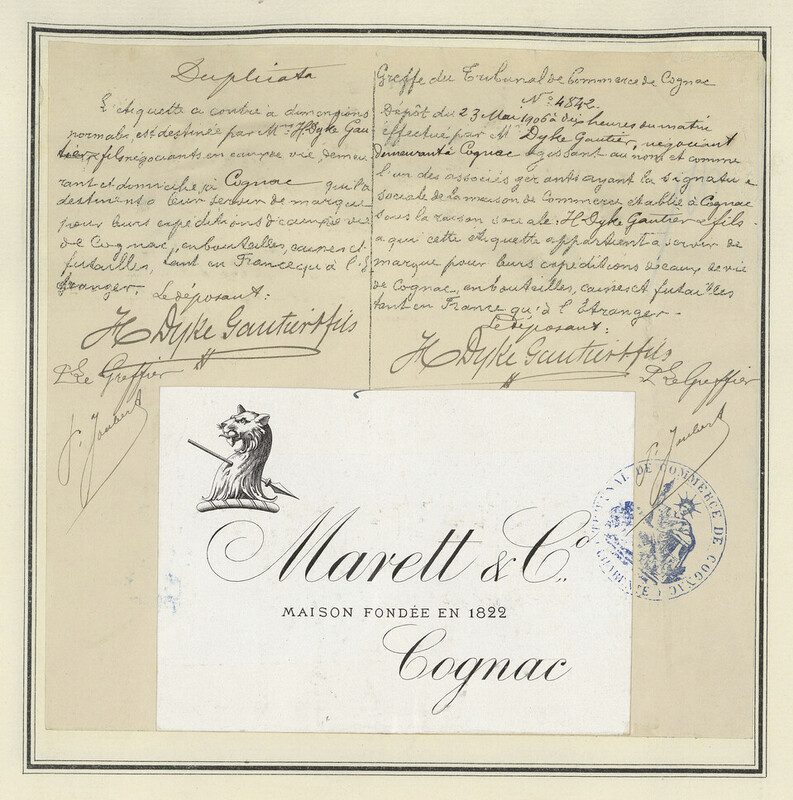 Duplicata
L'étiquette ci contre à dimensions
normales est destinée par Mrs H. Dyke Gau
tier & fils négociants en eaux de vie, demeu
rant et domiciliés à Cognac qui la
destinent à leur servir de marque
pour leurs expéditions d'eaux de vie
de Cognac, en bouteilles, caisses et
futailles, tant en France qu'à l'É
tranger.
Le déposant:
H Dyke Gautier & fils
P. Le Greffier
Joubert
Greffe du Tribunal de Commerce de Cognac
No. 4842.
Dépôt du 23 Mai 1906 à dix heures du matin
effectué par Mr Dyke Gautier, négociant
demeurant à Cognac agissant au nom et comme
l'un des associés gérants ayant la signature
sociale de la maison de Commerce établie à Cognac
sous la raison sociale: H. Dyke Gautier & fils
à qui cette étiquette appartient à servir de
marque pour leurs expéditions d'eaux de vie
de Cognac, en bouteilles, caisses et futailles
tant en France qu'à l'Étranger.
Le déposant:
H Dyke Gautier & fils
P. Le Greffier
Joubert
TRIBUNAL DE COMMERCE DE COGNAC
CHARENTE
Marett & Co.
MAISON FONDÉE EN 1822
Cognac